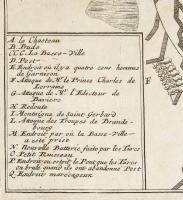 A le Chasteau
B. Bude
CCC. La Basse-Ville
D. Pest
E. Endroit où il y a quatre cens hommes
de Garnison
F. Attaque de Mr. le Prince Charles de
Lorraine
G. Attaque de Mr. l'Electeur de
Baviere
H. Redoute
I. Montagne de Saint Gerhard
L. Attaque des Troupes de Brande-
bourg
M. Endroit par où la Basse-Ville
a esté prise
N. Nouvelle Batterie faite par les Turcs
O. Petit Ruisseau
P. Endroit où estoit le Pont que les Turcs
on brulé quand ils ont abandonné Pest
Q. Endroit marecageux
F